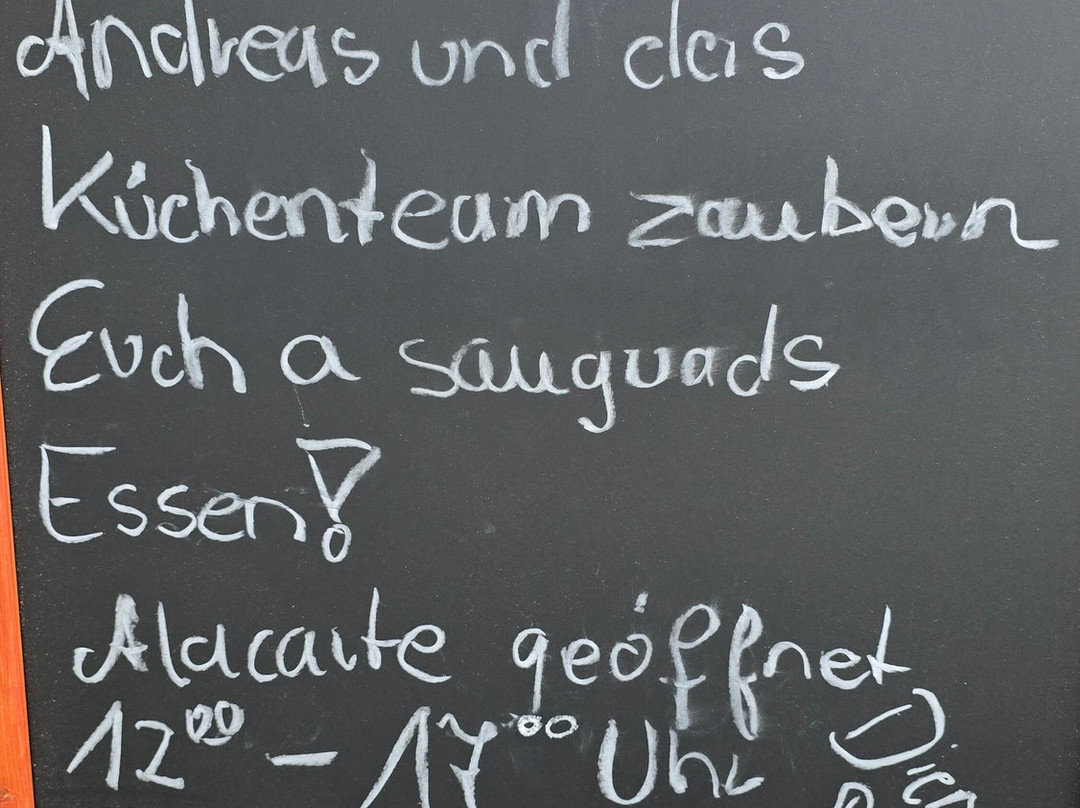 Andreas und das
Küchenteam zaubern
Euch a sauguads
Essen!
Alacarte geöffnet
12⁰⁰ - 17⁰⁰ Uhr